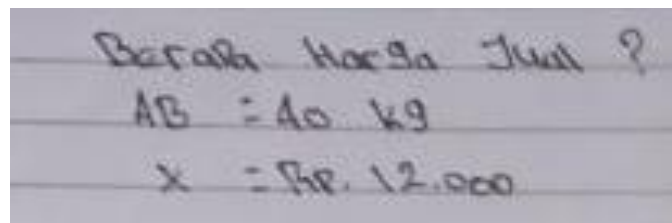 Berapa Harga Jual ?
AB = 40 kg
X = Rp. 12.000